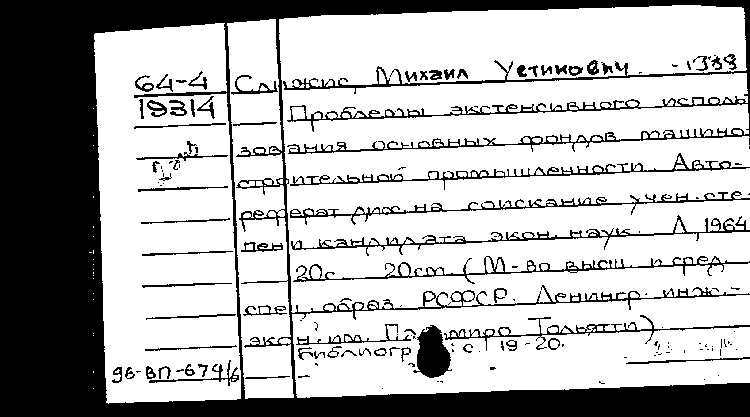 64-4
19314
Михаил Устинович
Проблемы экстенсивного исполь
зования основных фондов машино
строительной промышленности. Авто-
реферат дис. на соискание учен. сте
пени кандидата экон. наук. Л, 1964
20с. 20см. (М-во высш. и сред.
спец. образ. РСФСР. Ленингр. инж.-
экон. им. Тольятти)
Библиогр с. 19-20.
96-ВП-674/6